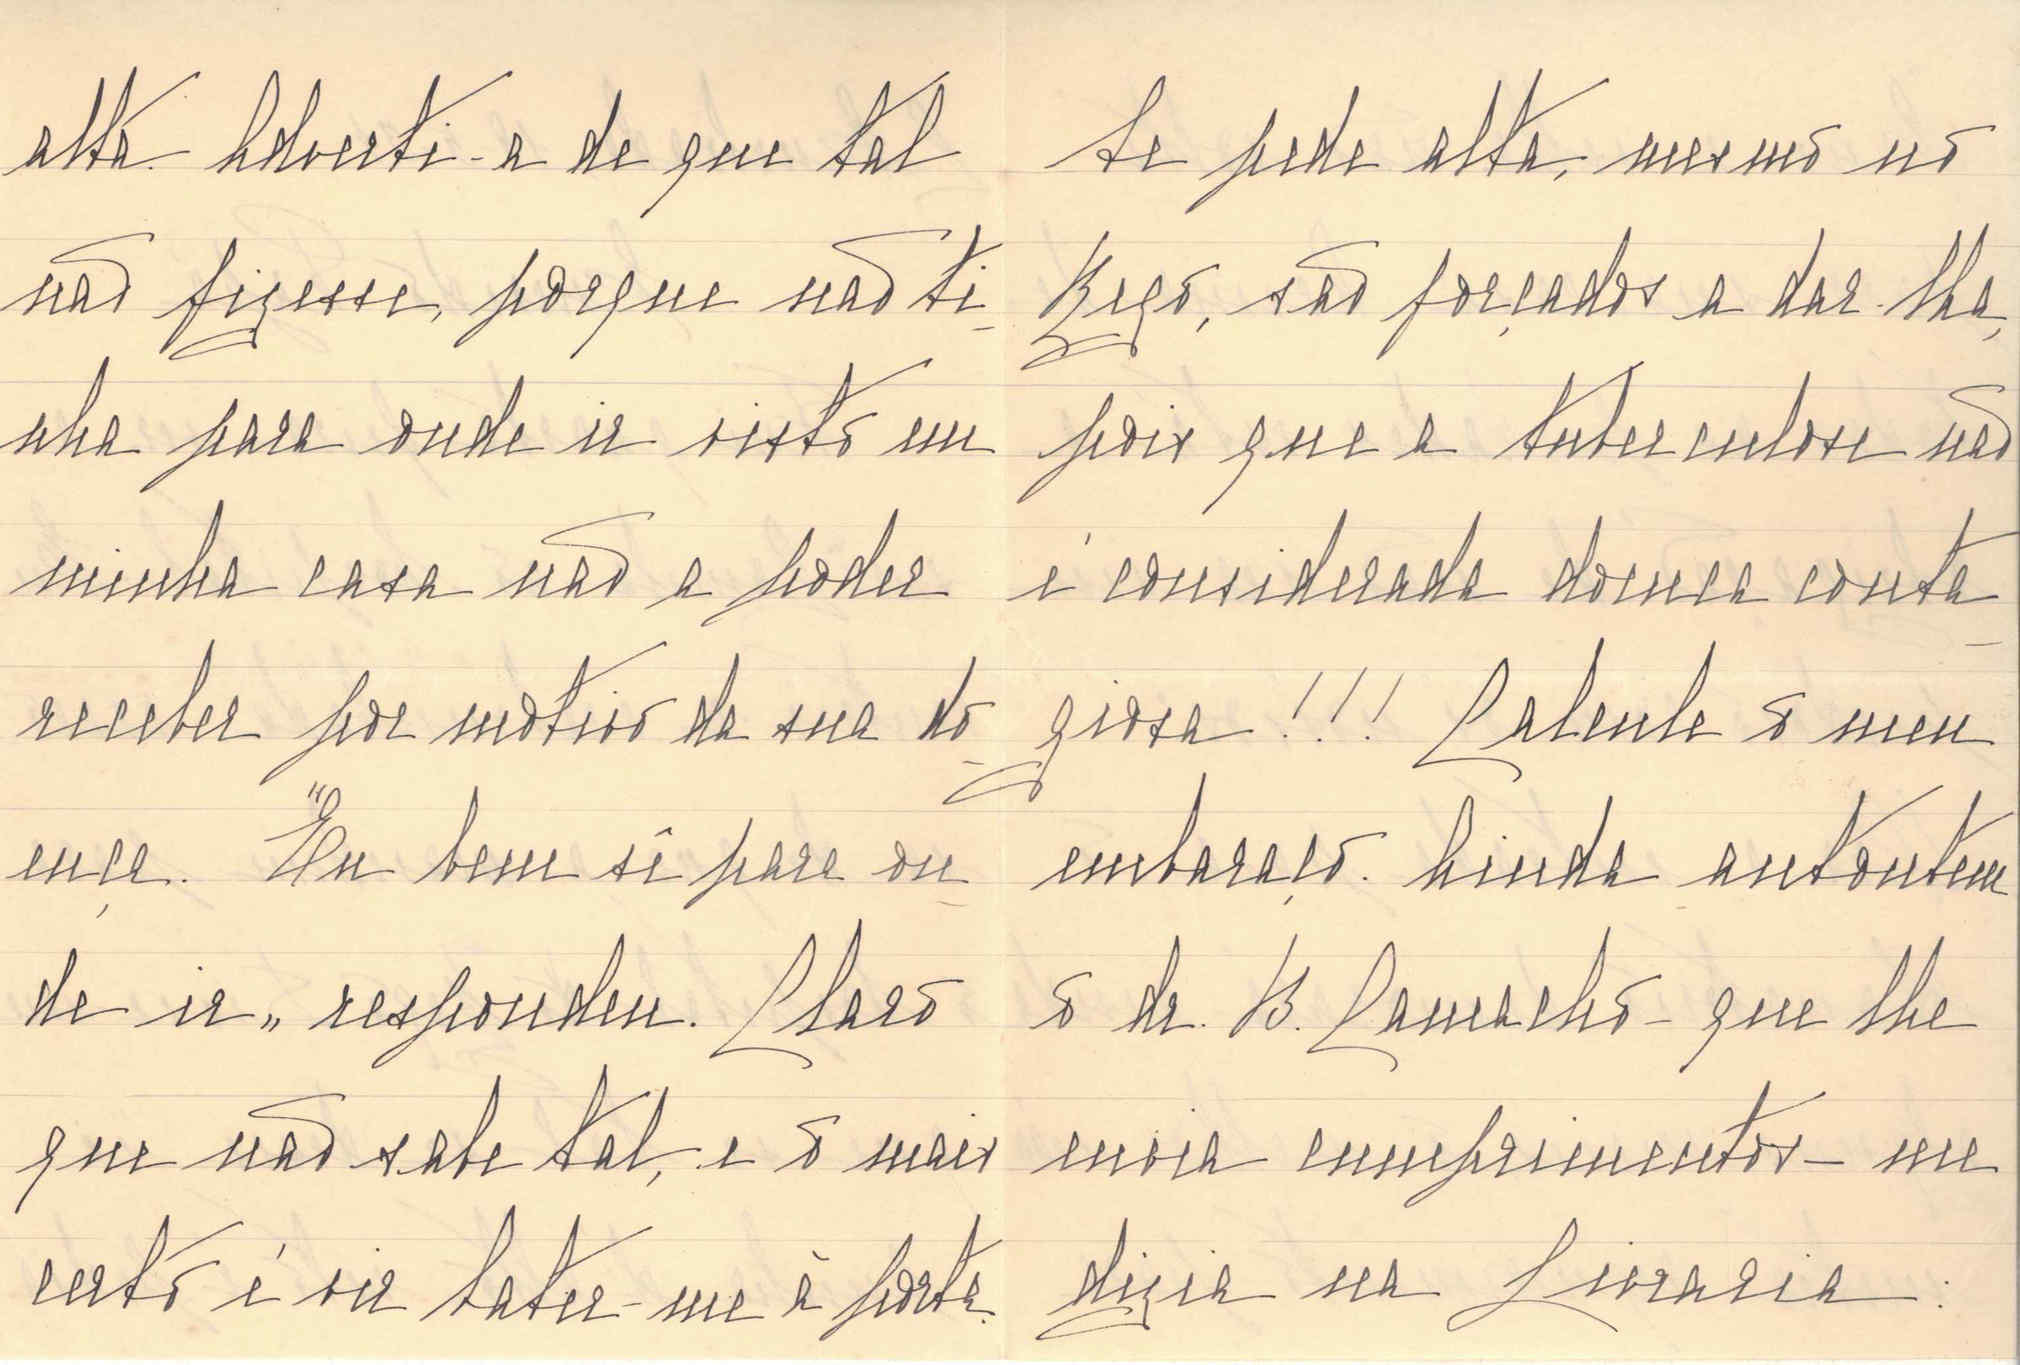 alta. Adverti-a de que tal
não fizesse, porque não ti-
nha para onde ir visto em
minha casa não a poder
receber por motivo da sua do-
ença. "Eu bem sê para on-
de ir" respondeu. Claro
que não sabe tal, e o mais
certo é vir bater-me à porta.
Se pede alta, mesmo no
Rego, são forçados a dar-lha,
pois que a tuberculose não
é considerada doença conta-
giosa!!! Calcule o meu
embaraço. Ainda antontem
o dr. B. Camacho – que lhe
envia cumprimentos – me
dizia na Livraria: